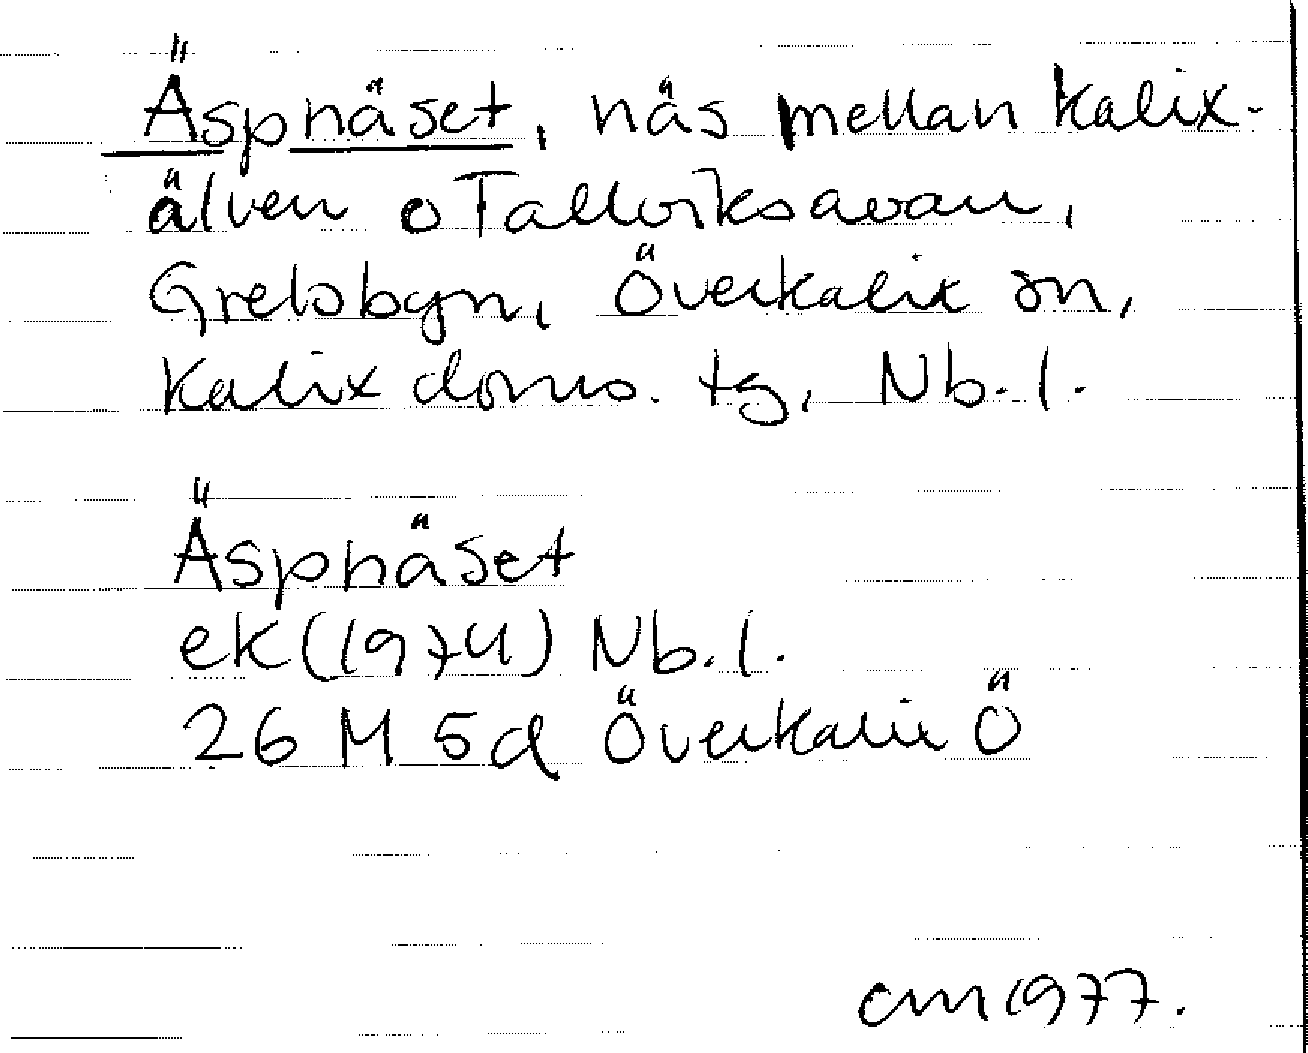 Äspnäset, näs mellan Kalix-
älven o Tallviksavan,
Grelsbyn, Överkalix sn,
Kalix doms. tg, Nb. l.
Äspnäset
ek (1974) Nb. l.
26 M 5d Överkalix Ö
cm 1977.